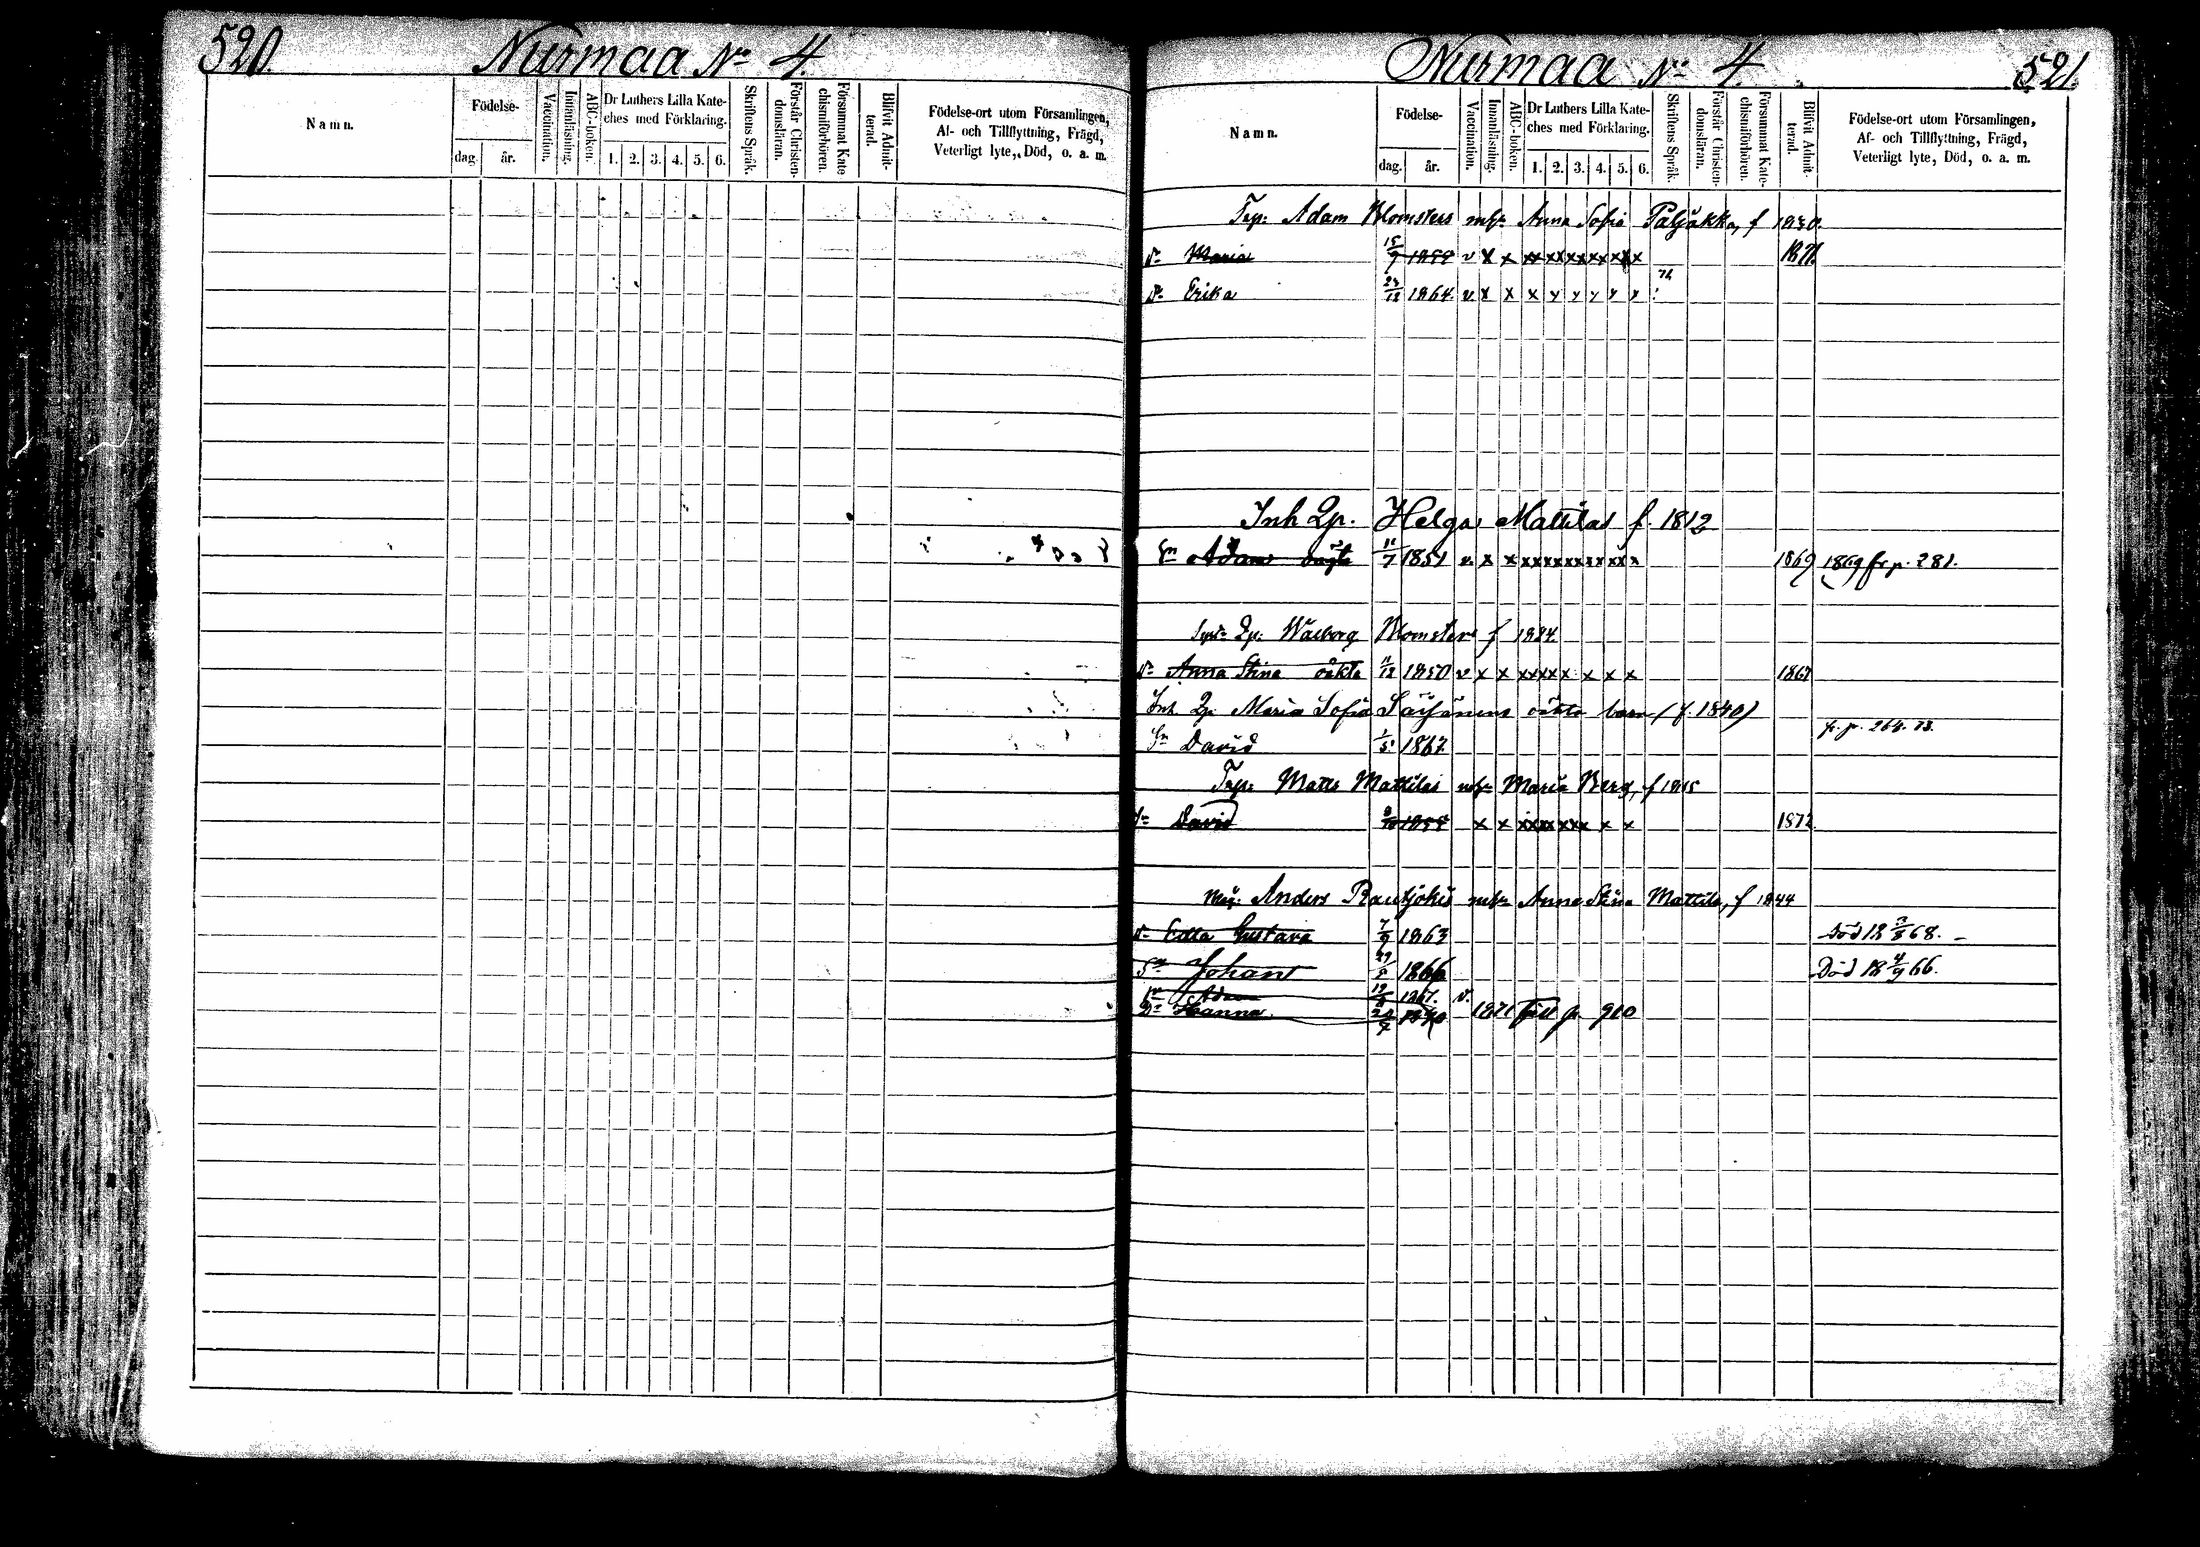 520.
Nurmaa No 4.
Namn.
Födelse-
dag.
år.
Vaccination.
Innanläsning.
ABC-boken.
Dr Luthers Lilla Kate-
ches med Förklaring.
1. 2. 3. 4. 5. 6.
Skriftens Språk.
Förstår Christen-
domsläran.
Försummat Kate
chismiförhören.
Blifvit Admit-
terad.
Födelse-ort utom Församlingen,
Af- och Tillflyttning, Frägd,
Veterligt lyte, Död, o. a. m.
Nurmaa No 4.
521.
Namn.
Födelse-
dag.
år.
Vaccination.
Innanläsning.
ABC-boken.
Dr Luthers Lilla Kate-
ches med Förklaring.
1. 2. 3. 4. 5. 6.
Skriftens Språk.
Förstår Christen-
domsläran.
Försummat Kate-
chismiförhören.
Blifvit Admit-
terad.
Födelse-ort utom Församlingen,
Af- och Tillflyttning, Frägd,
Veterligt lyte, Död, o. a. m.
Adam Blomsters Anna Sofia Paljakka, f 1830.
Dr Maria v x x xx xx xx xx xx x 1871.
Dr Erika 1864. v x x x y y y y y
Inh Qp. Helga Mattilas f. 1812
Sn Adam 11/7 1851 v. x x x x x x x x x x x x x 1869 1869 fr p. 281.
Qp. Walborg Blomster f 1824
Dr Anna Stina oäkta 11/12 1850 v x x x x x x x x x x 1867
Inh Qp. Maria Sofia oäkta barn (f. 1840)
Sn David 1/5 1867.
Matts Mattilas Maria Berg, f 1815
Sn David x x x x x x x x x x x 1872
Anders Rautjokis Anna Stina Mattila, f 1844
Dr Gustava 7/9 1863 död 18 68.
Sn Johan 29/5 1866 Död 18 4/9 66.
Sn Adam 1867. v.
Dr Hanna 1870 1871 p 910